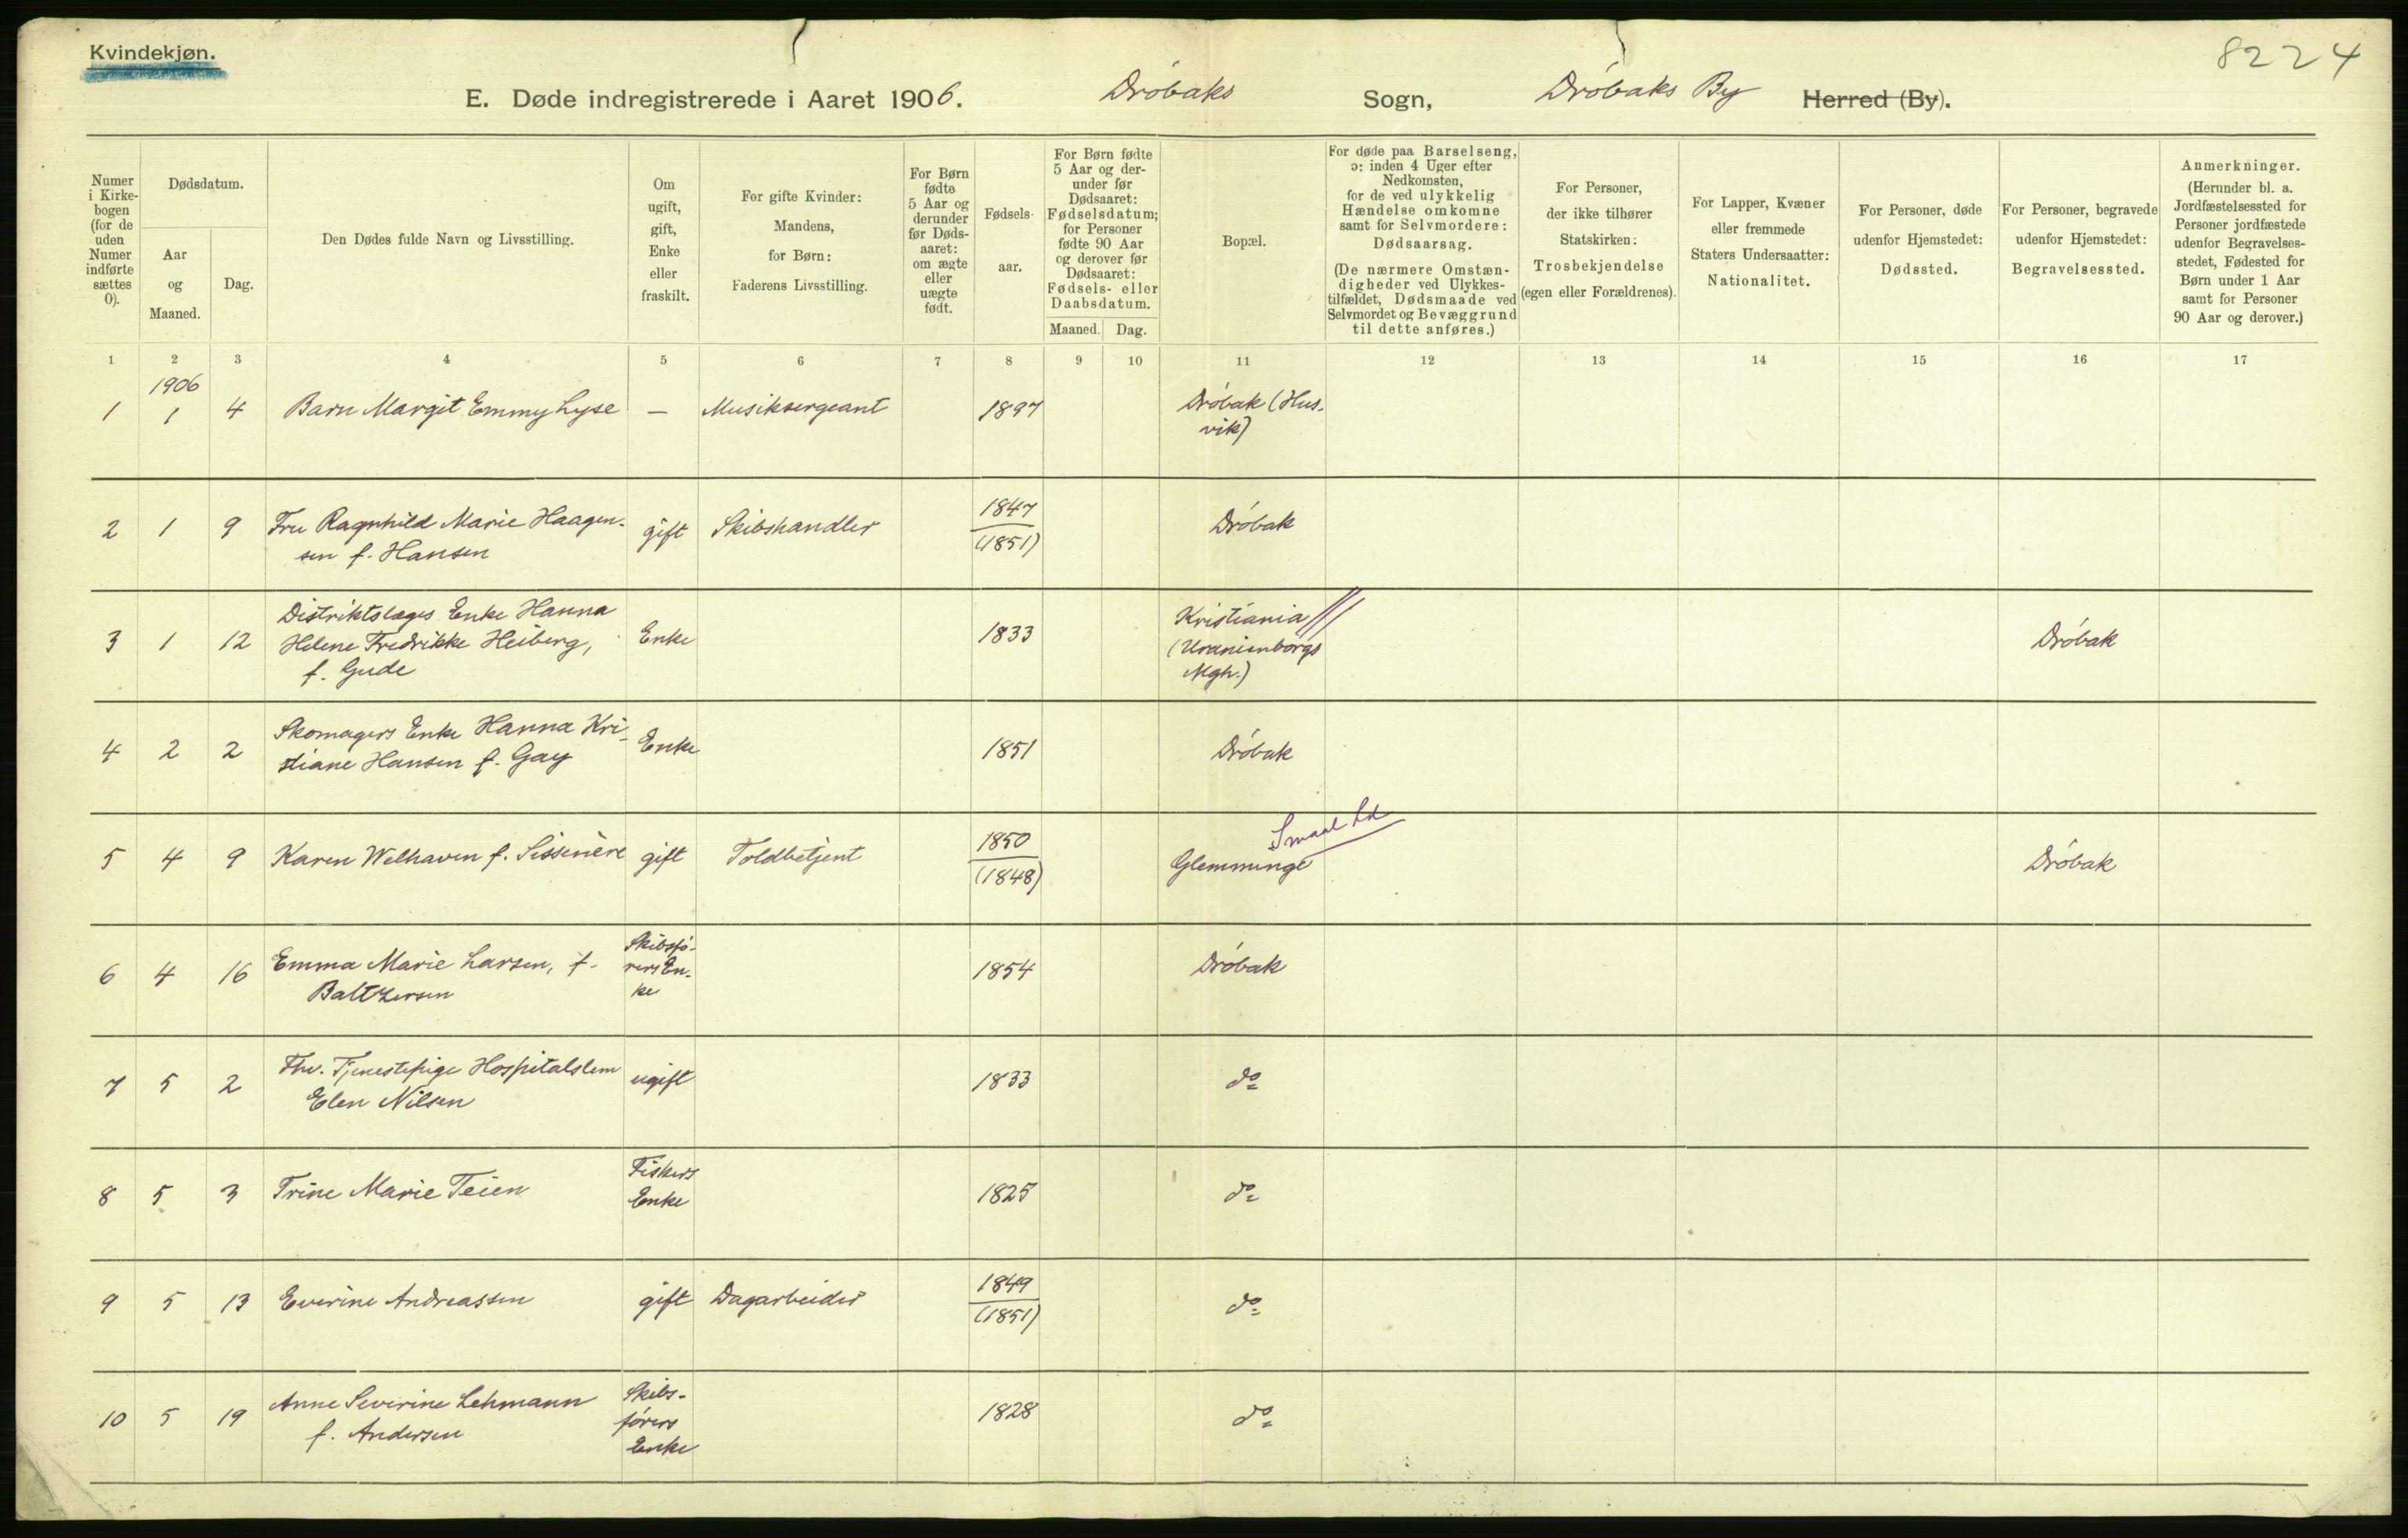 Kvindekjøn.
8224
E. Døde indregistrerede i Aaret 1906. Drøbaks Sogn, Drøbaks By Herred (By).
Numer
i Kirke-
bogen
(for de
uden
Numer
indførte
sættes
0).
Dødsdatum.
Aar
og
Maaned.
Dag.
Den Dødes fulde Navn og Livsstilling.
Om
ugift,
gift,
Enke
eller
fraskilt.
For gifte Kvinder:
Mandens,
for Børn:
Faderens Livsstilling.
For Børn
fødte
5 Aar og
derunder
før Døds-
aaret:
om ægte
eller
uægte
født.
Fødsels-
aar.
For Børn fødte
5 Aar og der-
under før
Dødsaaret:
Fødselsdatum;
for Personer
fødte 90 Aar
og derover før
Dødsaaret:
Fødsels- eller
Daabsdatum.
Maaned. Dag.
Bopæl.
For døde paa Barselseng,
ɔ: inden 4 Uger efter
Nedkomsten,
for de ved ulykkelig
Hændelse omkomne
samt for Selvmordere:
Dødsaarsag.
(De nærmere Omstæn-
digheder ved Ulykkes-
tilfældet, Dødsmaade ved
Selvmordet og Bevæggrund
til dette anføres.)
For Personer,
der ikke tilhører
Statskirken:
Trosbekjendelse
(egen eller Forældrenes).
For Lapper, Kvæner
eller fremmede
Staters Undersaatter:
Nationalitet.
For Personer, døde
udenfor Hjemstedet:
Dødssted.
For Personer, begravede
udenfor Hjemstedet:
Begravelsessted.
Anmerkninger.
(Herunder bl. a.
Jordfæstelsessted for
Personer jordfæstede
udenfor Begravelses-
stedet, Fødested for
Børn under 1 Aar
samt for Personer
90 Aar og derover.)
1 2 3 4 5 6 7 8 9 10 11 12 13 14 15 16 17
1906
1 1 4 Barn Margit Emmy Lyse — Musiksergeant 1897 Drøbak (Hus-
vik)
2 1 9 Fru Ragnhild Marie Haagen- gift Skibshandler 1847 Drøbak
sen f. Hansen (1851)
Distriktslæges Enke Hanna Kristiania
3 1 12 Helene Fredrikke Heiberg, Enke 1833 (Uranienborgs Drøbak
f. Gude Mgh.)
Skomagers Enke Hanna Kri-
4 2 2 stiane Hansen f. Gay Enke 1851 Drøbak
Smaal Ld
5 4 9 Karen Welhaven f. Sissenère gift Toldbetjent 1850 Glemminge Drøbak
(1848)
6 4 16 Emma Marie Larsen, f. Skibsfø- 1854 Drøbak
Baltzersen rers En-
ke
Fhv. Tjenestepige Hospitalslem
7 5 2 Elen Nilsen ugift 1833 do
8 5 3 Trine Marie Teien Fiskers 1825 do
Enke
9 5 13 Everine Andreassen gift Dagarbeider 1849 do
(1851)
10 5 19 Anne Severine Lehmann Skibs- 1828 do
f. Andersen førers
Enke